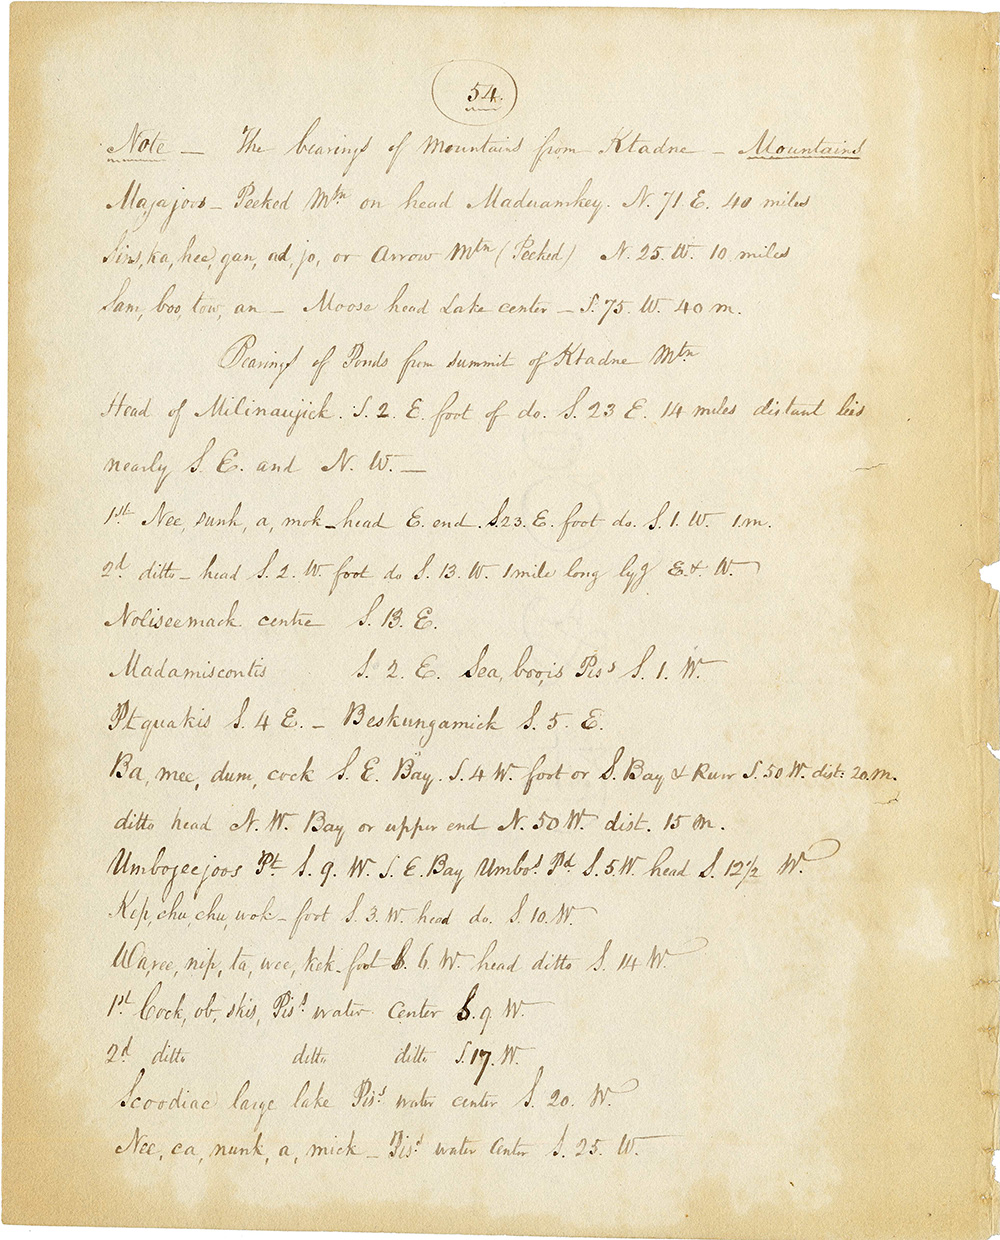 54.
Note — The bearings of Mountains from Ktadne — Mountains
Majajoos — Peeked Mtn on head Maduamkey. N. 71. E. 40 miles
Sins, ka, hee, gan, ad, jo, or Arrow Mtn (Peeked) N. 25. W. 10 miles
Sam, boo, tow, an — Moose head Lake center — S. 75. W. 40 m.
Bearings of Ponds from summit of Ktadne Mtn
Head of Milinaujick. S. 2. E. foot of do. S. 23 E. 14 miles distant lies
nearly S. E. and N. W. —
1st Nee, sunk, a, mok — head E. end. S. 23. E. foot do. S. 1. W. 1 m.
2d ditto — head S. 2. W. foot do S. 13. W. 1 mile long lyg E. & W.
Noliseemack centre S. 13. E.
Madamiscontis S. 2. E. Sea, boo, is Piss S. 1. W.
Ptquakis S. 4 E. — Beskungamick S. 5. E.
Ba, mee, dum, cock S. E. Bay. S. 4 W. foot or S. Bay & Runr S. 50 W. dist. 20. m.
ditto head N. W. Bay or upper end N. 50 W. dist. 15 m.
Umbojeejoos Pt. S. 9. W. S. E. Bay Umbos Pd. S. 5. W. head S. 12 1/2 W.
Kep, chu, chu, wok — foot S. 3. W. head do. S. 10. W.
Waree, nip, ta, wee, kek — foot S. 6. W. head ditto S. 14 W.
1st Cock, ob, skis, Piss water center S. 9 W.
2d ditto ditto ditto S. 17. W.
Scoodiac large lake Piss water center S. 20. W.
Nee, ca, nunk, a, mick — Piss water center S. 25. W.